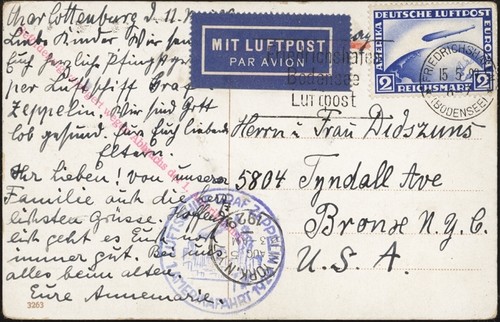 Charlottenburg d. 11.
Liebe Kinder Wir sen
Euch herzliche Pfingstgr
per Luftschiff Graf
Zeppelin. Wir sind Gott
lob gesund. Für Euch liebend
Eltern.
Ihr Lieben! Von unsrer
Familie auch die herz
lichsten Grüsse. Hoffent
lich geht es Euch noch
immer gut. Bei uns
alles beim alten.
Eure Annemarie.
3263
MIT LUFTPOST
PAR AVION
Friedrichshafen
Bodensee
Luftpost
DEUTSCHE LUFTPOST
EUROPA
AMERIKA
2 REICHSMARK 2
FRIEDRICHSHAFEN
15.5.
(BODENSEE)
Herrn u Frau Didszuns
5804 Tyndall Ave
Bronx N.Y.C.
U.S.A.
wegen
1.
LUFTSCHIFF GRAF ZEPPELIN
1. AMERIKAFAHRT 1929
YORK, N.Y.
AUG
5
1929